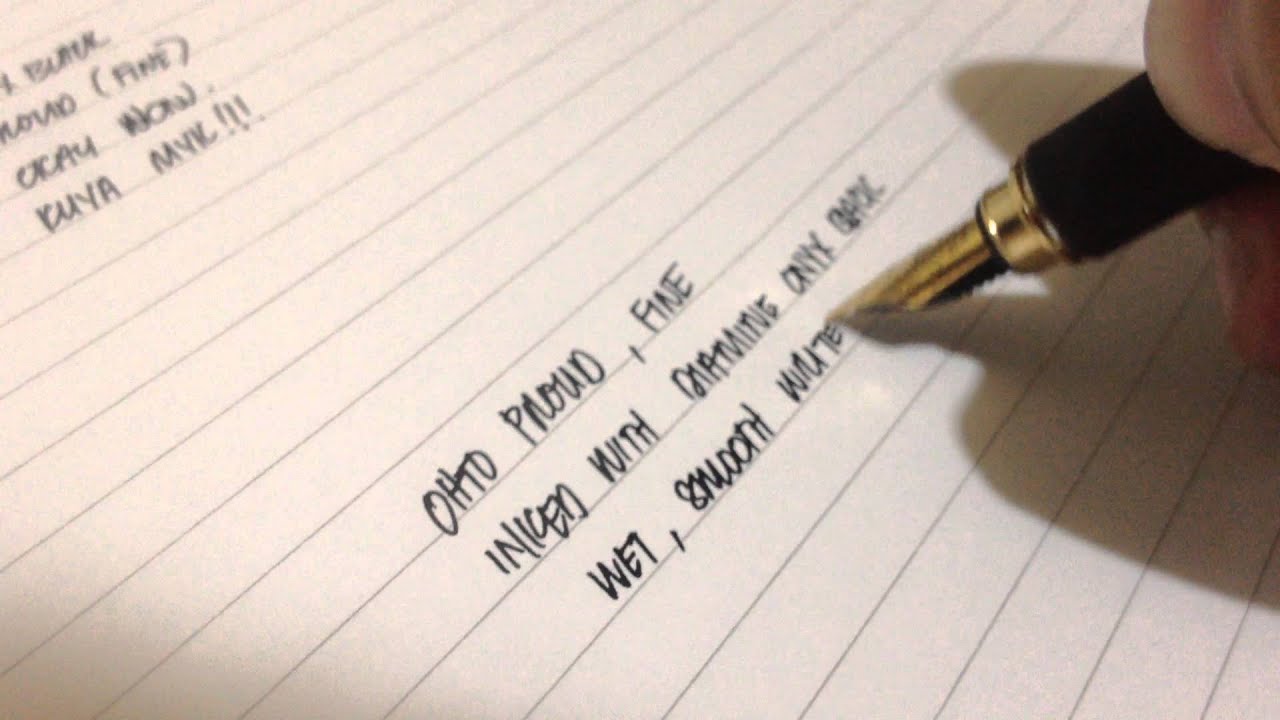 BLACK
PROUD (FINE)
OKAY NOW.
KUYA MYK!!!
OHTO PROUD, FINE
INKED WITH DIAMINE ONYX BLACK
WET, SMOOTH WRITE